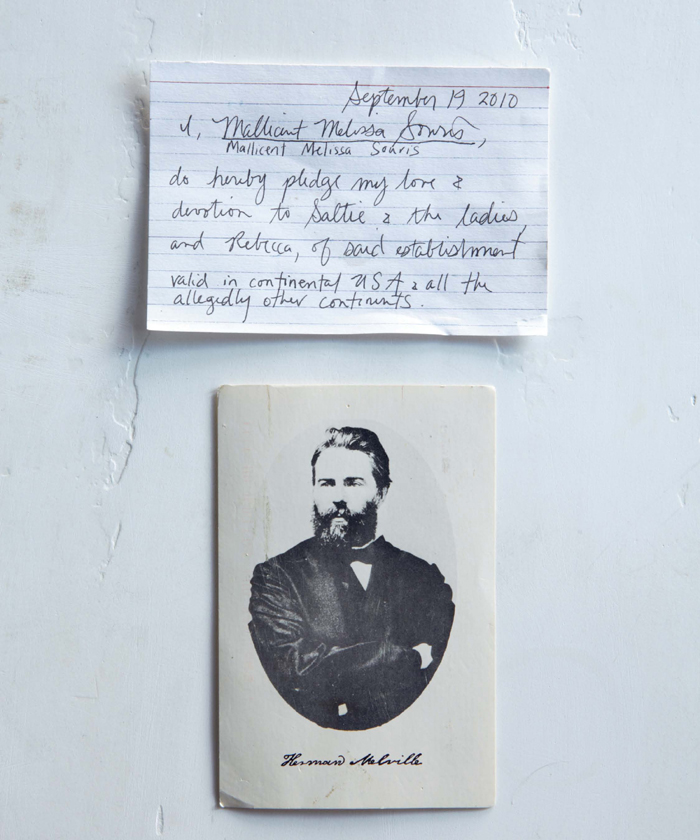 September 19 2010
I, Mallicent Melissa Souris,
Mallicent Melissa Souris
do hereby pledge my love &
devotion to Saltie & the ladies,
and Rebecca, of said establishment
valid in continental USA & all the
allegedly other continents.
Herman Melville